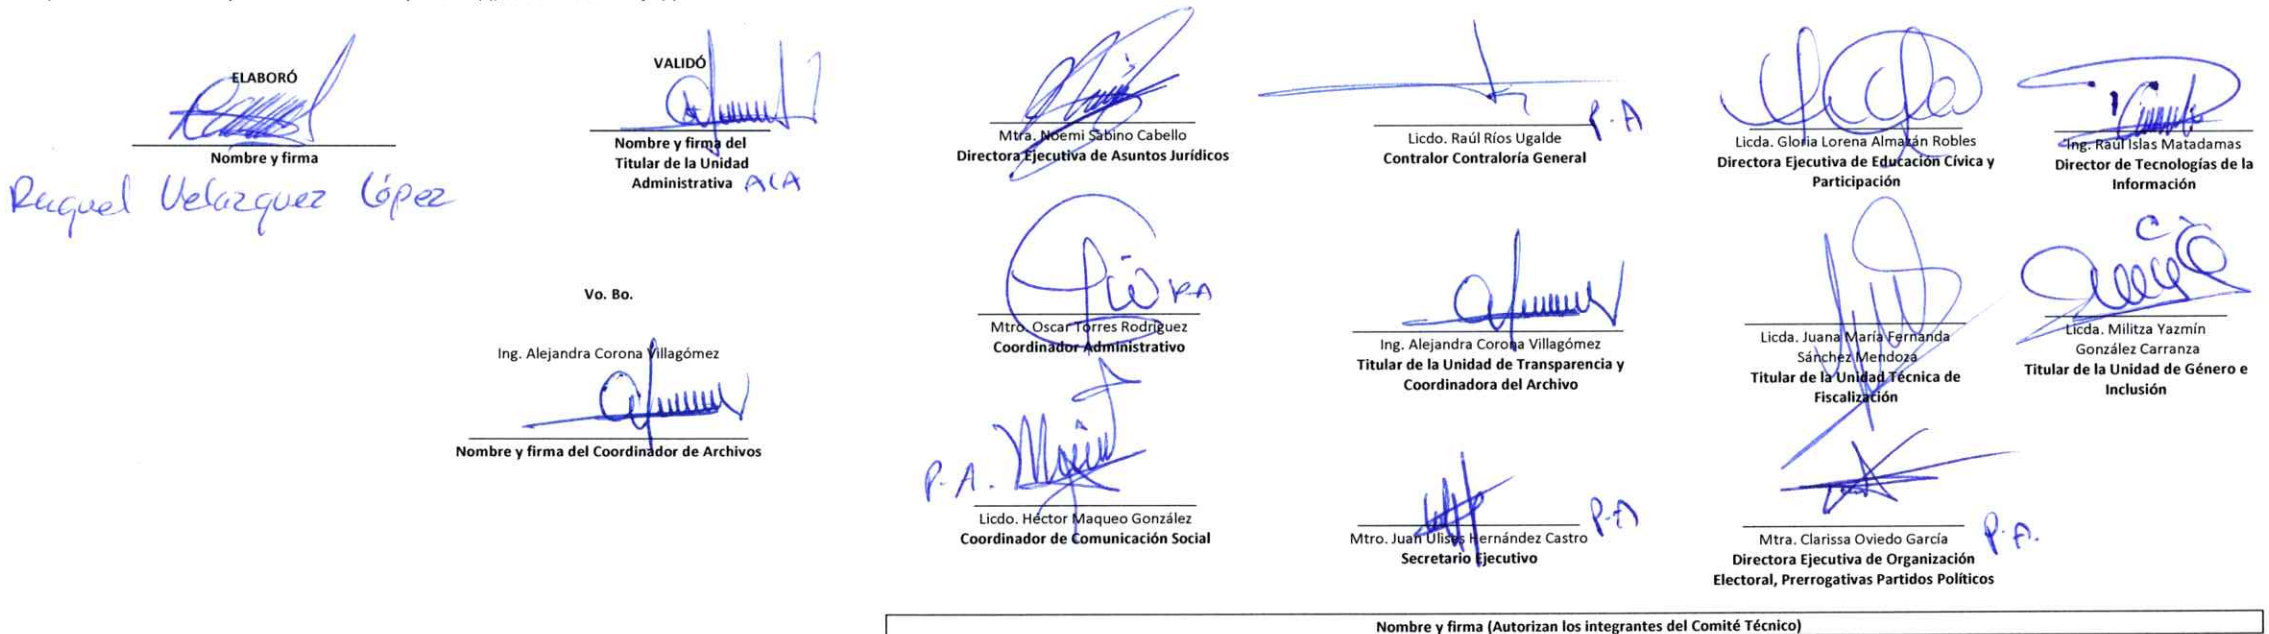 ELABORÓ
Nombre y firma
Raquel Velazquez López
VALIDÓ
Nombre y firma del
Titular de la Unidad
Administrativa ACA
Vo. Bo.
Ing. Alejandra Corona Villagómez
Nombre y firma del Coordinador de Archivos
Mtra. Noemi Sabino Cabello
Directora Ejecutiva de Asuntos Jurídicos
P.A
Licdo. Raúl Ríos Ugalde
Contralor Contraloría General
Licda. Gloria Lorena Almazán Robles
Directora Ejecutiva de Educación Cívica y
Participación
Ing. Raúl Islas Matadamas
Director de Tecnologías de la
Información
Mtro. Oscar Torres Rodríguez
Coordinador Administrativo
Ing. Alejandra Corona Villagómez
Titular de la Unidad de Transparencia y
Coordinadora del Archivo
Licda. Juana María Fernanda
Sánchez Mendoza
Titular de la Unidad Técnica de
Fiscalización
Licda. Militza Yazmín
González Carranza
Titular de la Unidad de Género e
Inclusión
P.A.
Licdo. Héctor Maqueo González
Coordinador de Comunicación Social
P.A
Mtro. Juan Ulises Hernández Castro
Secretario Ejecutivo
P.A.
Mtra. Clarissa Oviedo García
Directora Ejecutiva de Organización
Electoral, Prerrogativas Partidos Políticos
Nombre y firma (Autorizan los integrantes del Comité Técnico)